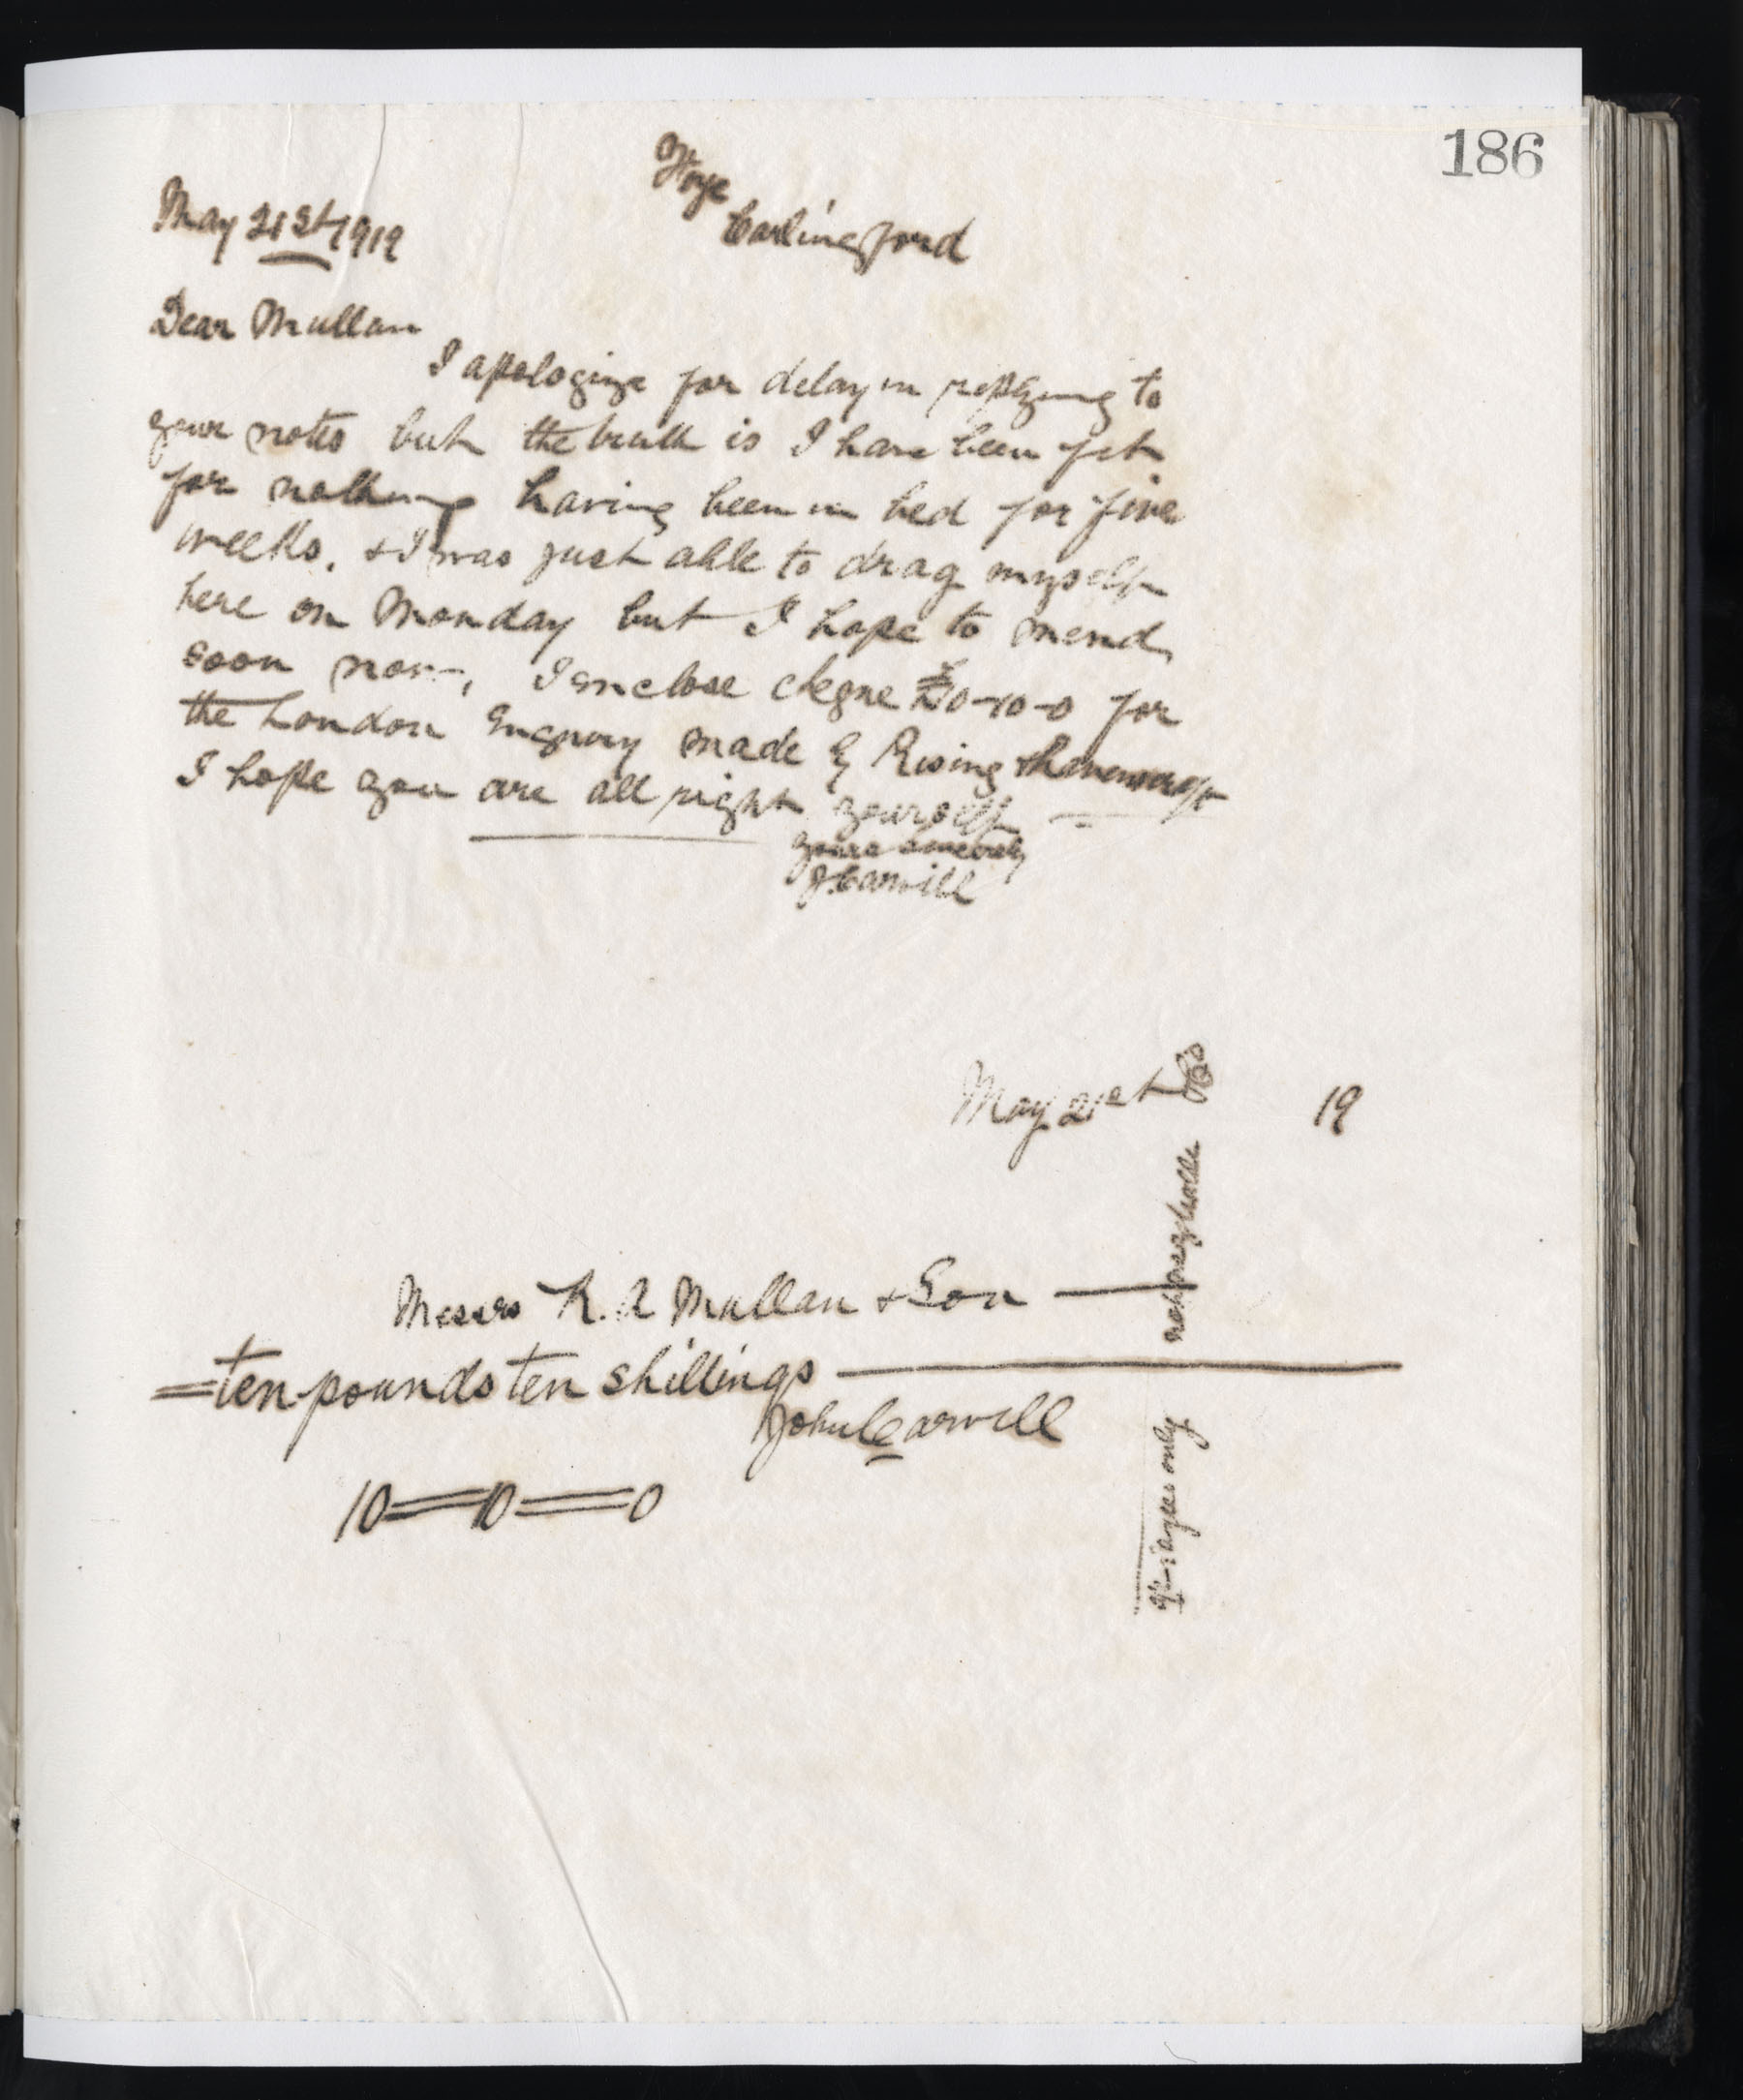 186
Carlingford
May 21st 1919
Dear Mullan
I apologize for delay in replying to
your notes but the truth is I have been fit
for nothing having been in bed for five
weeks. & I was just able to drag myself
here on Monday but I hope to mend
soon now, I enclose cheque £10-10-0 for
the London Enquiry made by Rising &
I hope you are all right yourself
yours sincerely
J. Carvill
May 21st 19
& Co
not negotiable
Messrs R. A Mullan & Son
= ten pounds ten shillings
John Carvill
payees only
10=10=0